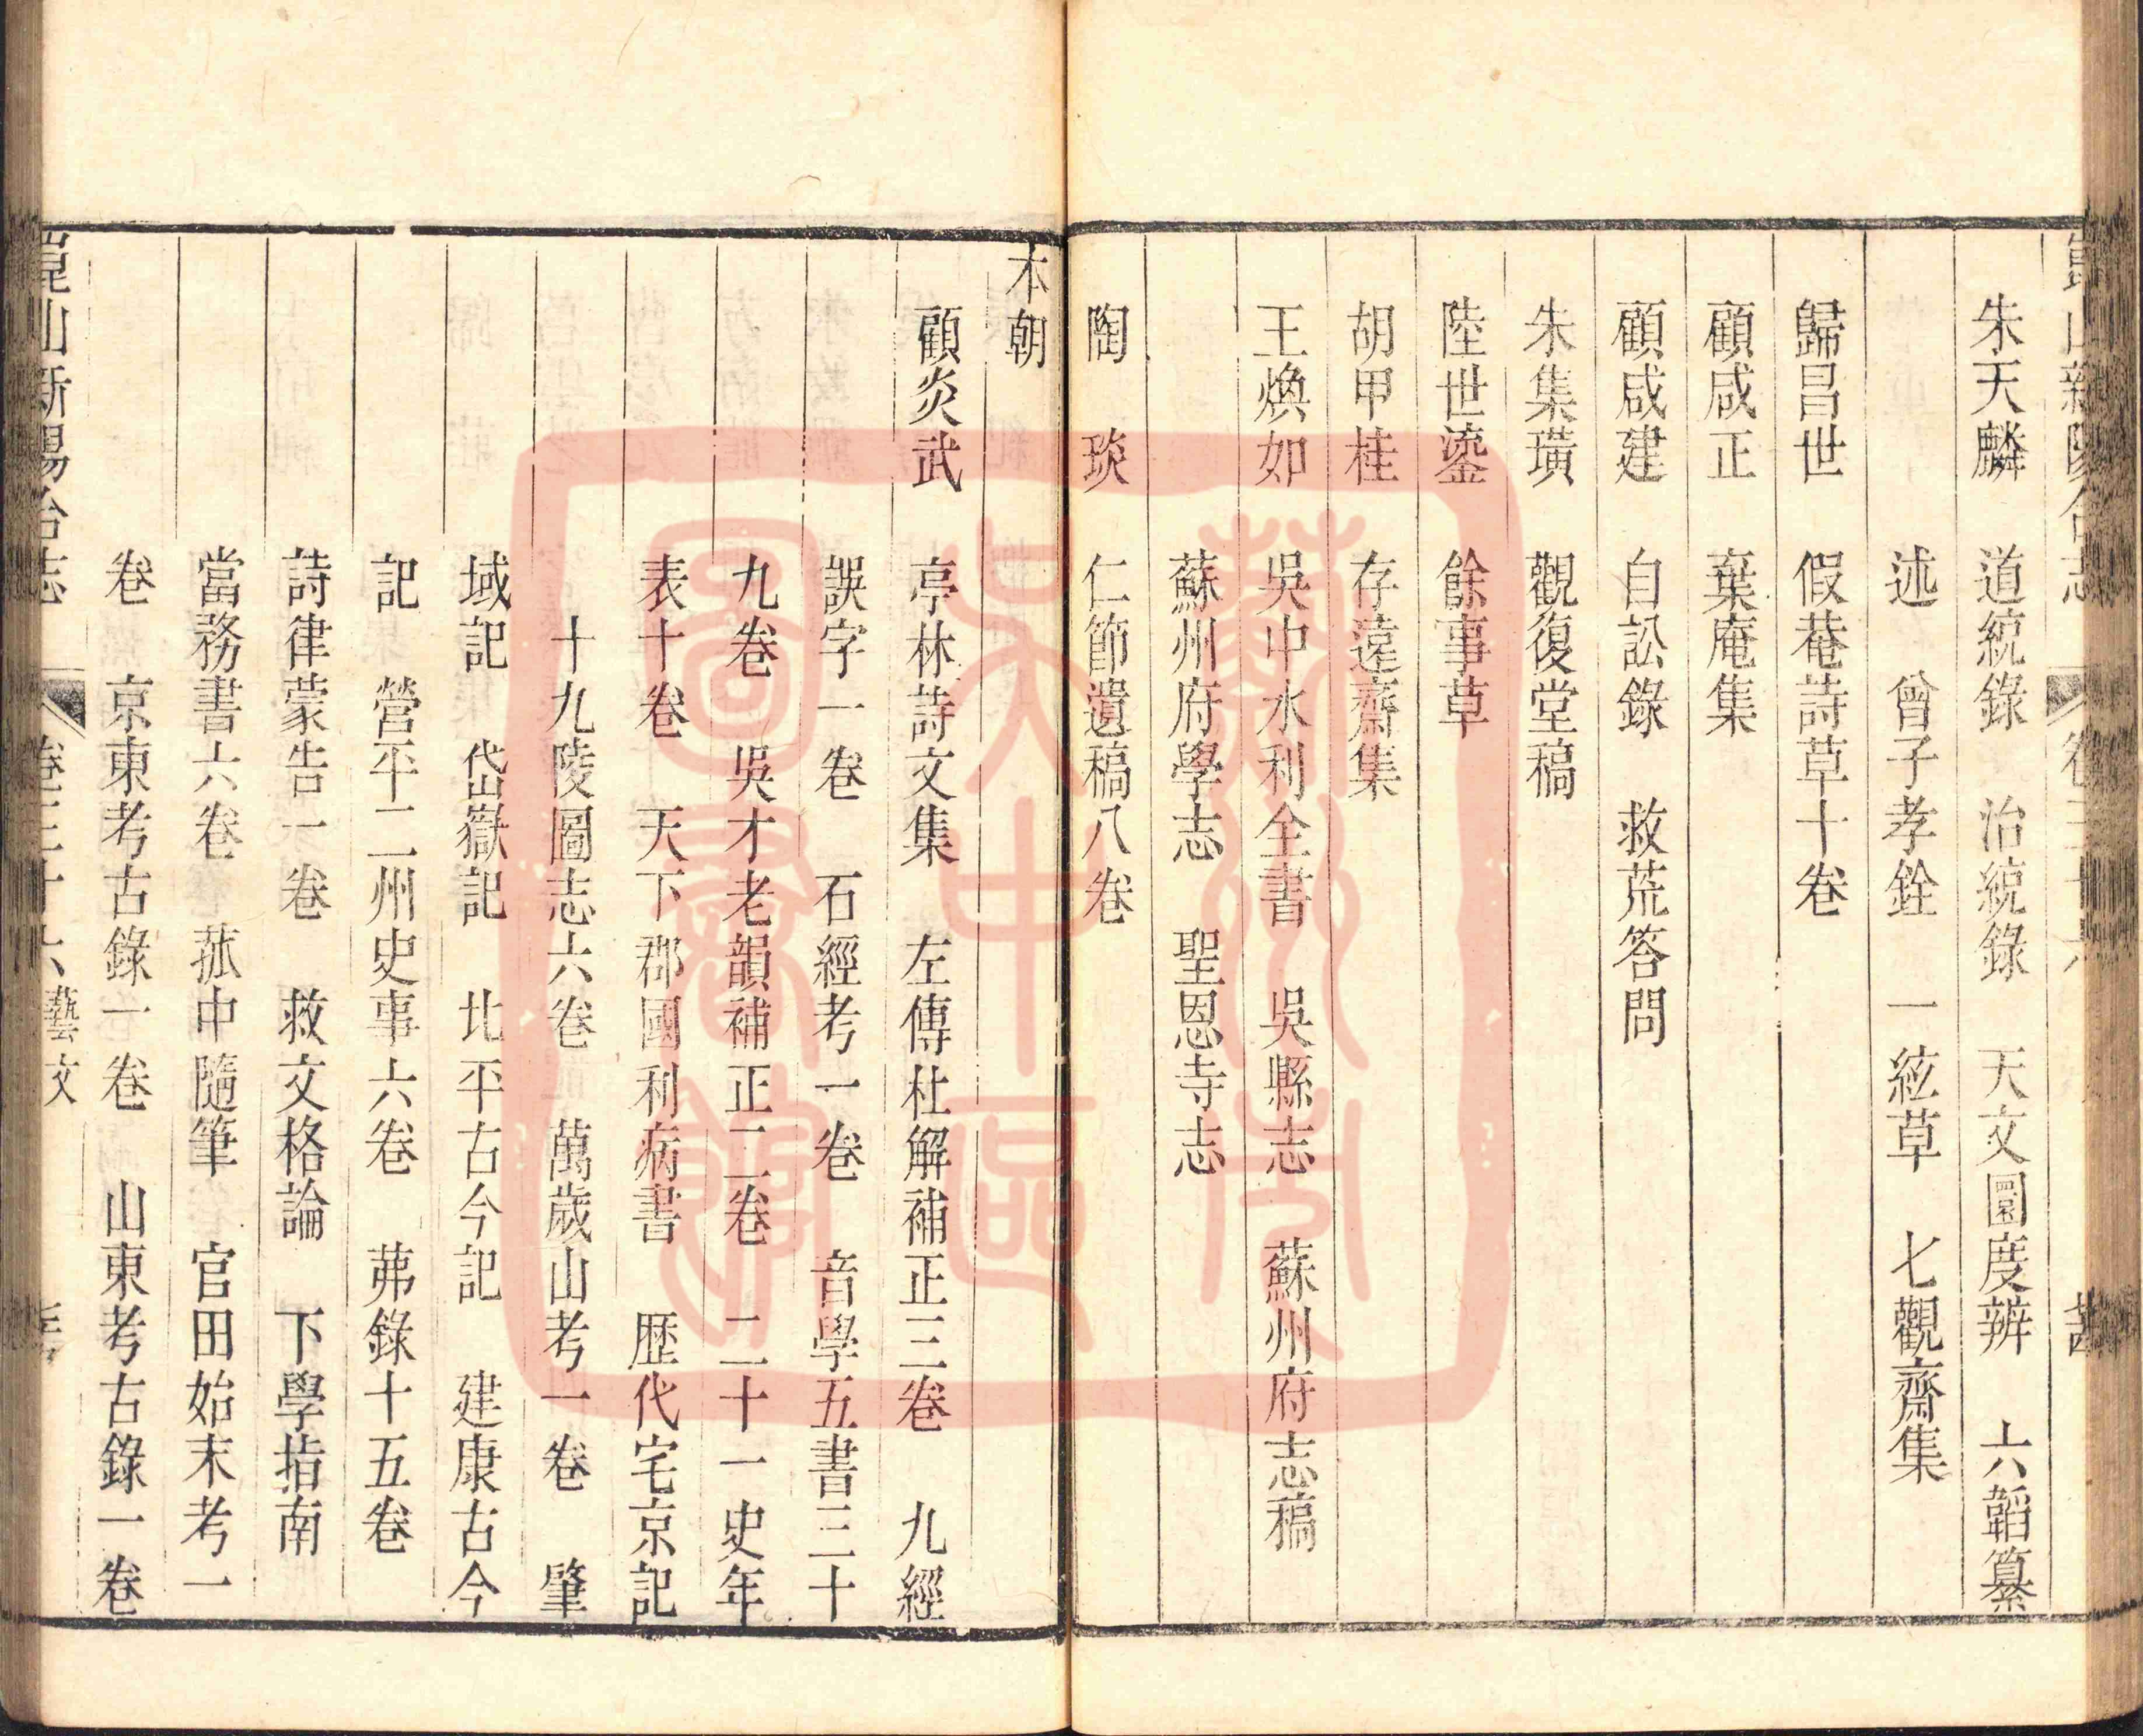 崑山新陽合志 卷三十六
朱天麟 道統錄 治統錄 天文圜度辨 六韜纂
述 曾子孝銓 一絃草 七觀齋集
歸昌世 假菴詩草十卷
顧咸正 棄庵集
顧咸建 自訟錄 救荒答問
朱集璜 觀復堂稿
陸世鎏 餘事草
胡甲桂 存遠齋集
王煥如 吳中水利全書 吳縣志 蘇州府志稿
蘇州府學志 聖恩寺志
陶琰 仁節遺稿八卷
本朝
顧炎武 亭林詩文集 左傳杜解補正三卷 九經
誤字一卷 石經考一卷 音學五書三十
九卷 吳才老韻補正二卷 二十一史年
表十卷 天下郡國利病書 歷代宅京記
十九陵圖志六卷 萬歲山考一卷 肇
域記 岱嶽記 北平古今記 建康古今
記 營平二州史事六卷 茀錄十五卷
詩律蒙告一卷 救文格論 下學指南
當務書六卷 菰中隨筆 官田始末考一
卷 京東考古錄一卷 山東考古錄一卷
崑山新陽合志 卷三十六 藝文
蘇州市
吳中區
圖書館